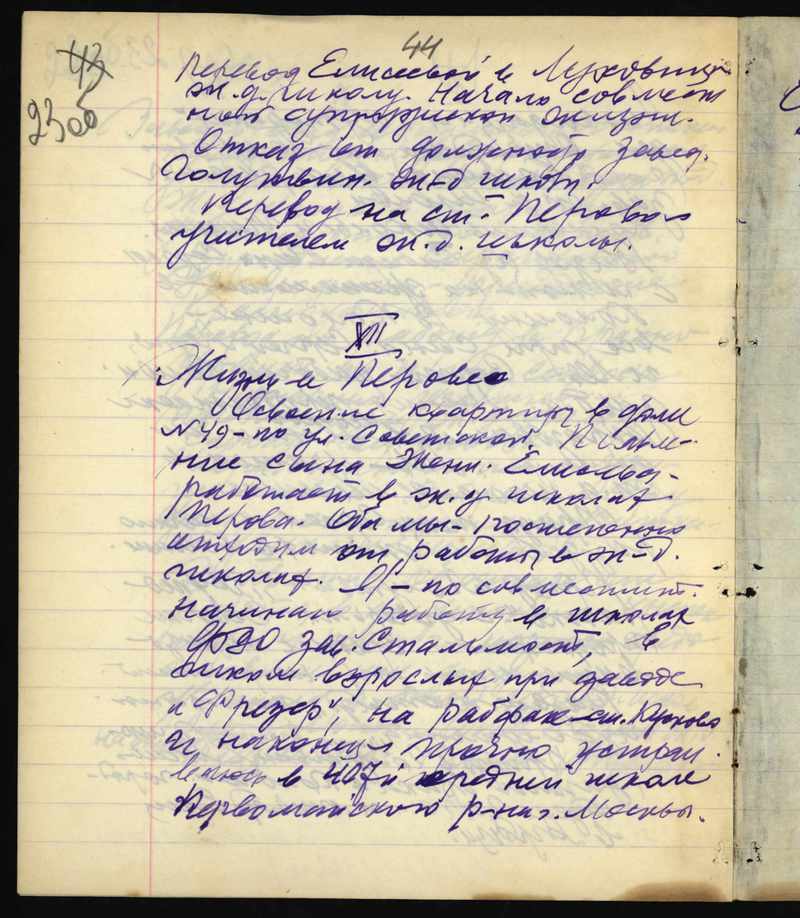 44
43
23об
Перевод Елисеевой в Луховицк.
ж.д. школу. Начало совмест
ной супружеской жизни.
Отказ от должности завед.
Голутвин. ж-д школы.
Перевод на ст. Перово
учителем ж.д. школы.
XII
Жизнь в Перове
Освоение квартиры в доме
№49 - по ул. Советской.
ние сына Жени.
работает в ж.д школах
Перова. Оба мы - постепенно
отходим от работы в ж-д.
школах. Я - по совместит.
начинаю работу в школах
ФЗО зав. Стальмост, в
школе взрослых при заводе
"Фрезер", на рабфаке ст.
и наконец прочно устраи
ваюсь в 407й средней школе
Первомайского р-на г. Москвы.